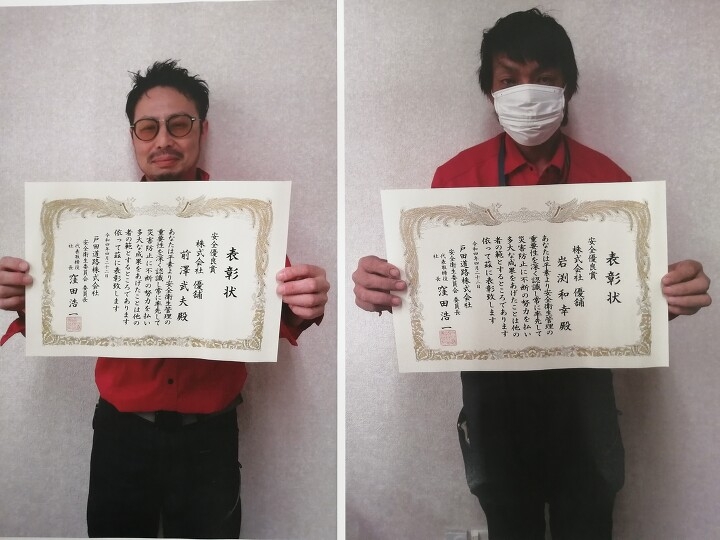 表彰状
安全優良賞
株式会社 優舗
前澤武夫 殿
あなたは平素より安全衛生管理の
重要性を深く認識し常に率先して
災害防止に不断の努力を払い
多大な成果をあげたことは他の
者の範とするところであります
依って茲に表彰致します
令和四年四月二十二日
戸田道路株式会社
安全衛生委員会 委員長
代表取締役社長 窪田浩一
表彰状
安全優良賞
株式会社 優舗
岩渕和幸 殿
あなたは平素より安全衛生管理の
重要性を深く認識し常に率先して
災害防止に不断の努力を払い
多大な成果をあげたことは他の
者の範とするところであります
依って茲に表彰致します
令和四年四月二十二日
戸田道路株式会社
安全衛生委員会 委員長
代表取締役社長 窪田浩一